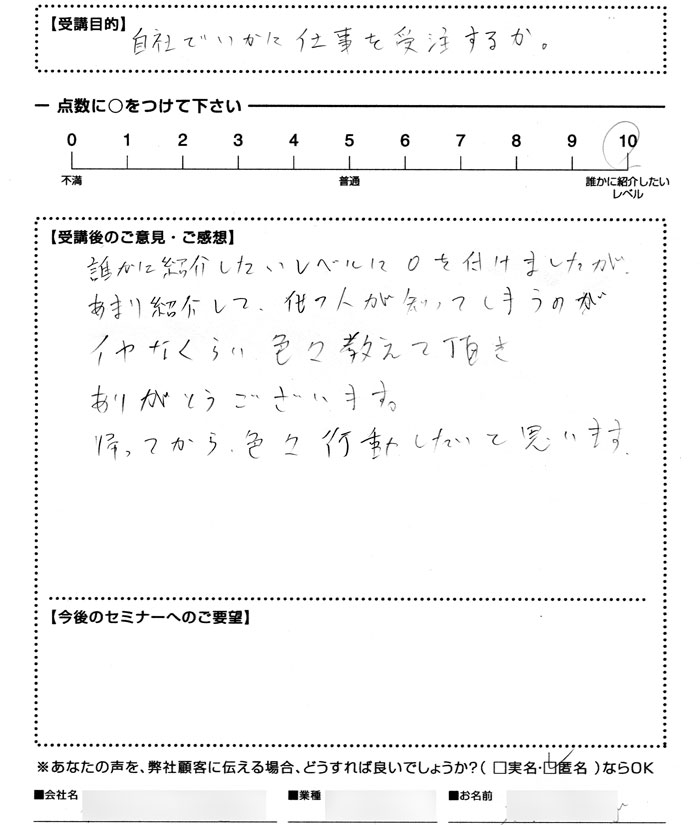 【受講目的】
自社でいかに仕事を受注するか。
点数に○をつけて下さい
0 1 2 3 4 5 6 7 8 9 10
不満 普通 誰かに紹介したい
レベル
【受講後のご意見・ご感想】
誰かに紹介したいレベルに○を付けましたが、
あまり紹介して、他の人が知ってしまうのが
イヤなくらい色々教えて頂き
ありがとうございます。
帰ってから、色々行動したいと思います。
【今後のセミナーへのご要望】
※あなたの声を、弊社顧客に伝える場合、どうすれば良いでしょうか?( □実名・☑匿名 )ならOK
■会社名 ■業種 ■お名前